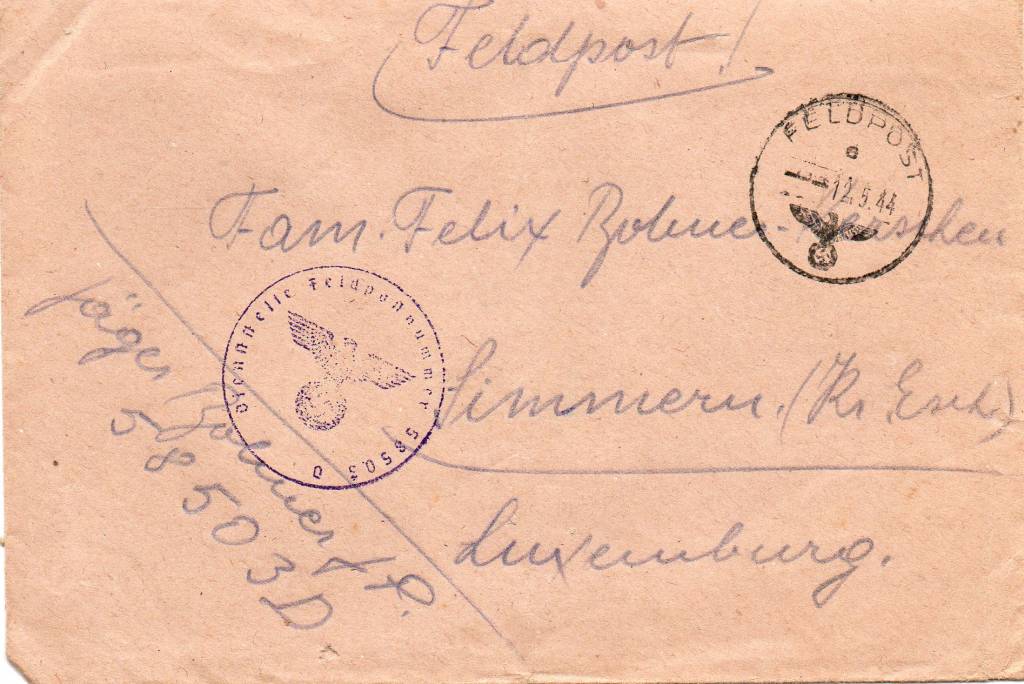 Feldpost!
FELDPOST
a
12.5.44
Fam. Felix Bohmer-Kerschen
Simmern. (Kr. Esch.)
Luxemburg.
Dienststelle Feldpostnummer 58503 D
Jäger Bohmer J. P.
58503D